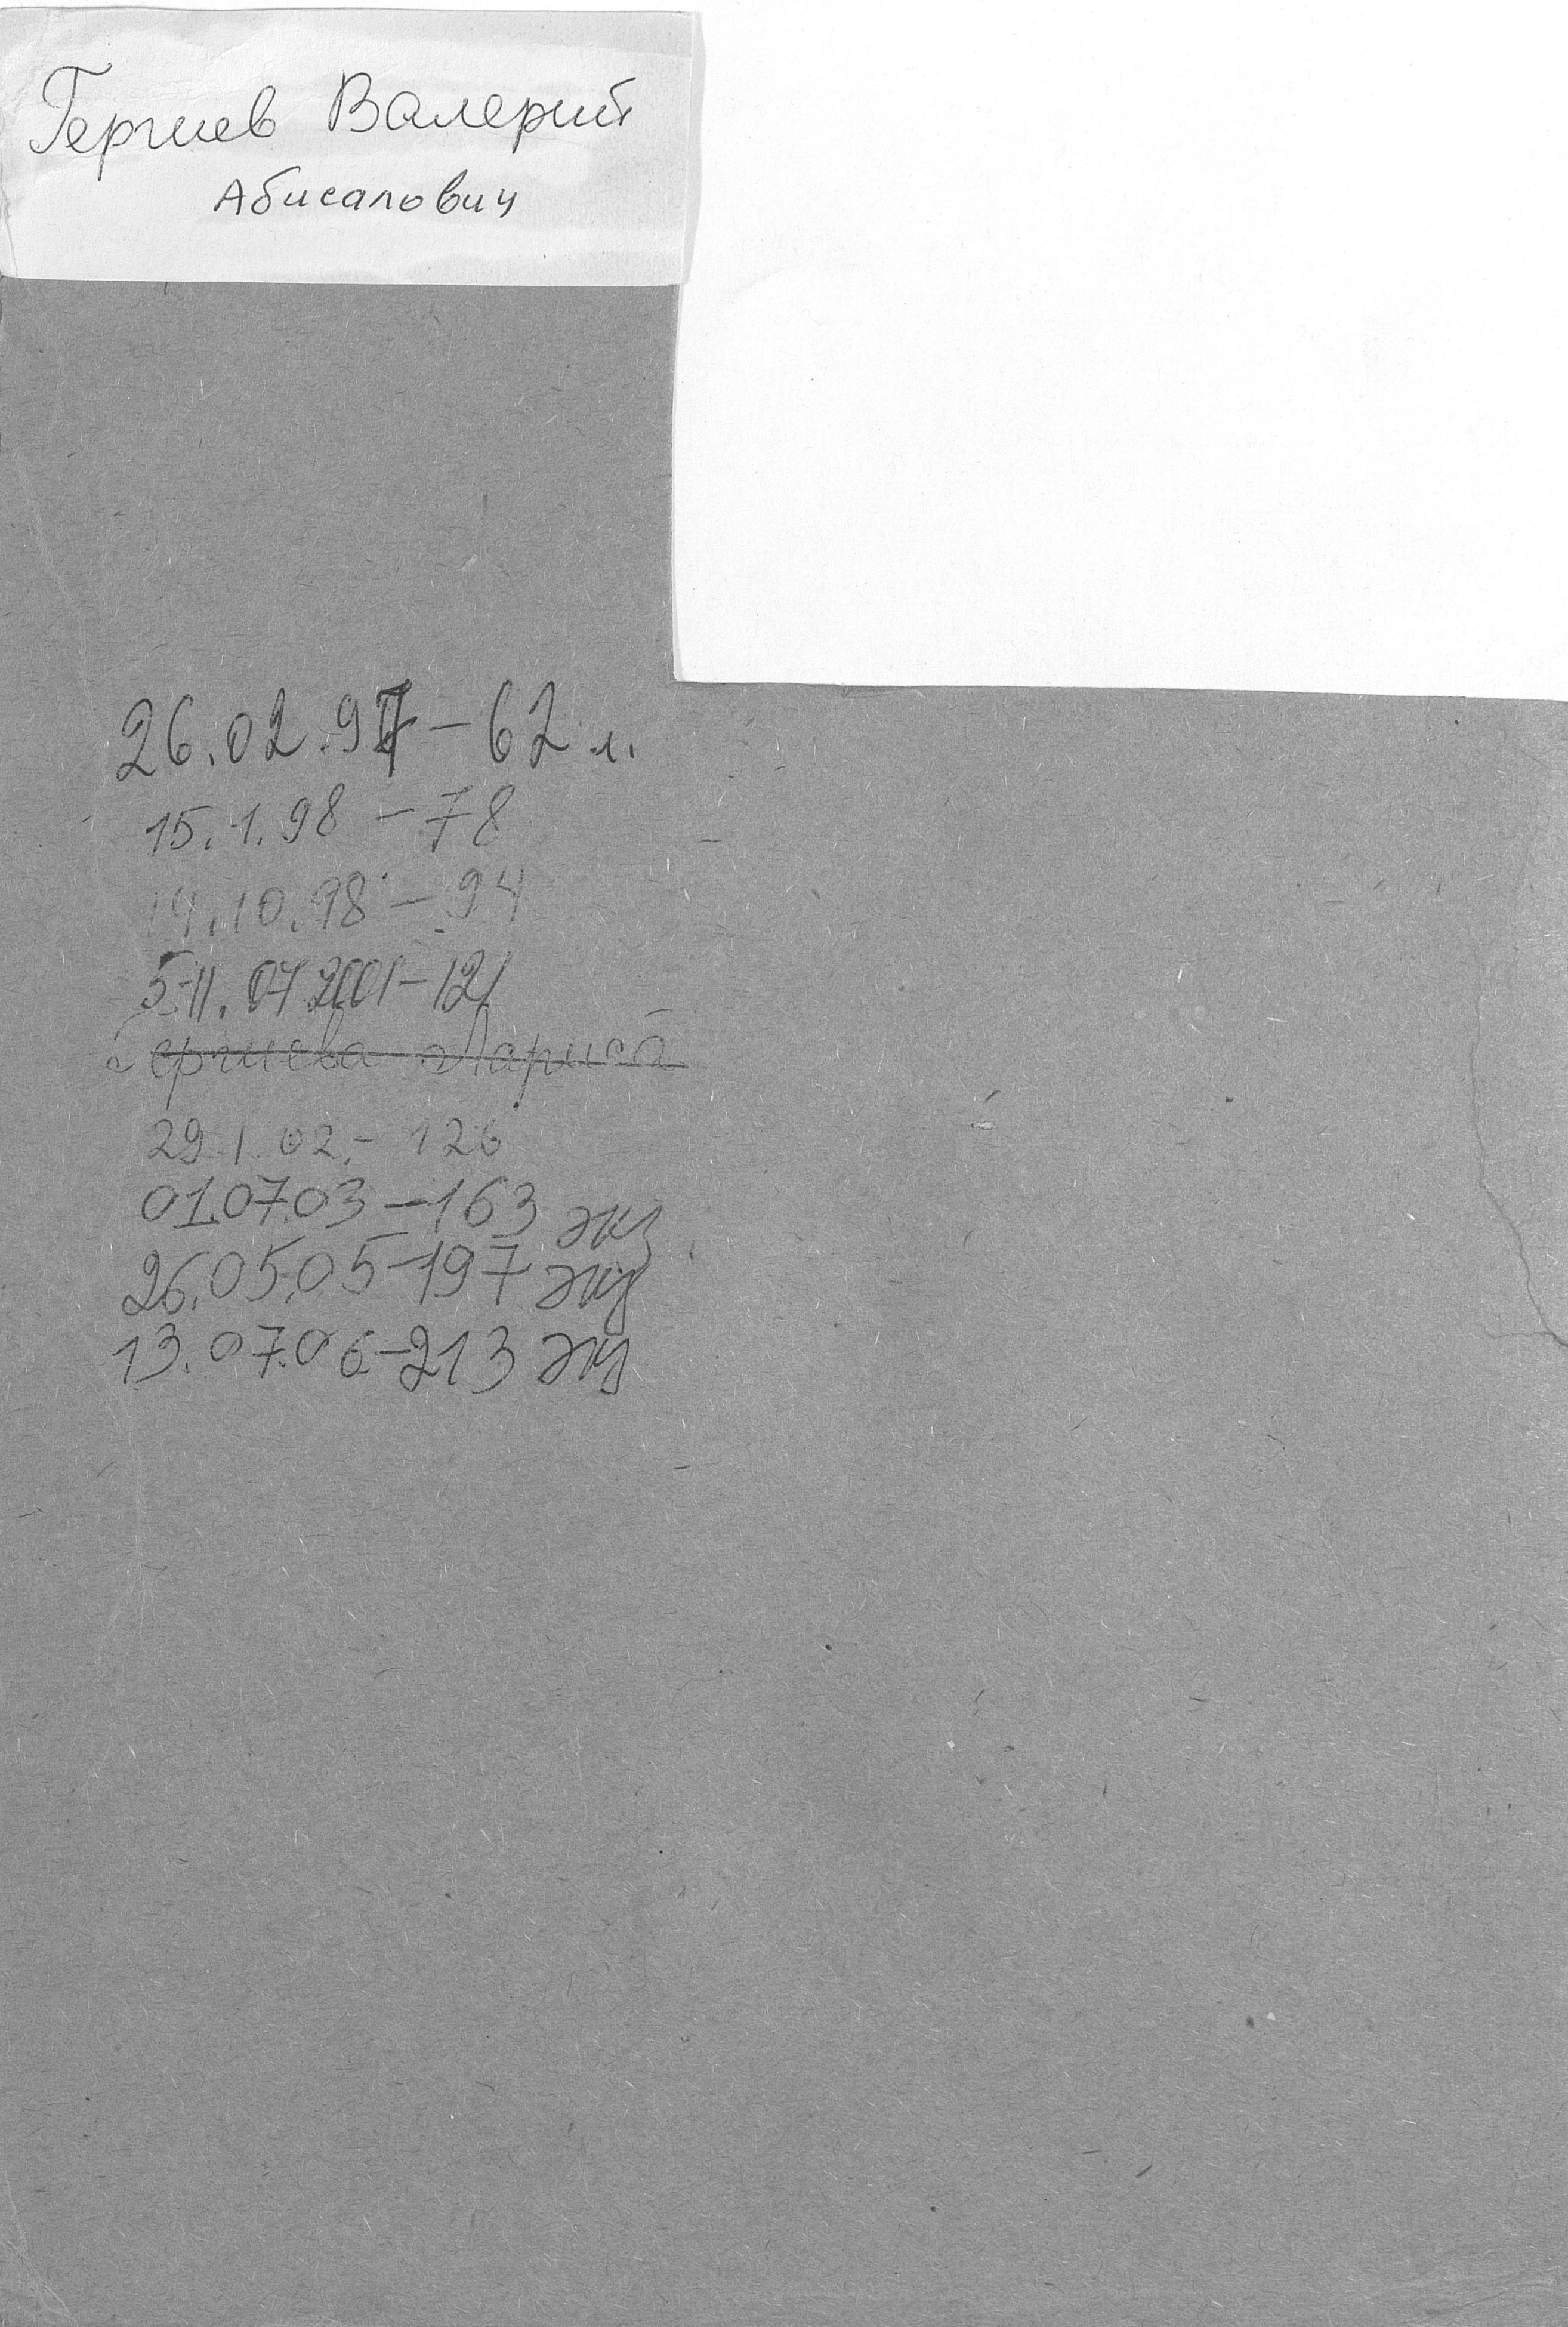 Гергиев Валерий
Абисалович
26.02.97 – 62 л.
15.1.98 – 78
14.10.98 – 94
5-11.07.2001 – 121
Гергиева Лариса
29.1.02. – 126
01.07.03 – 163 экз
26.05.05 – 197 экз
13.07.06 – 213 экз